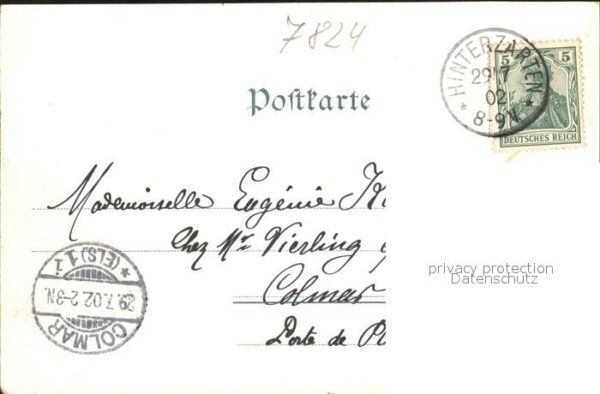 7824
Postkarte
HINTERZARTEN
29 7
02
8-9N
5 5
DEUTSCHES REICH
Mademoiselle Eugénie
Chez Mr Vierling
Colmar
Porte de
COLMAR
29.7.02 2-3N.
(ELS) 1
privacy protection
Datenschutz